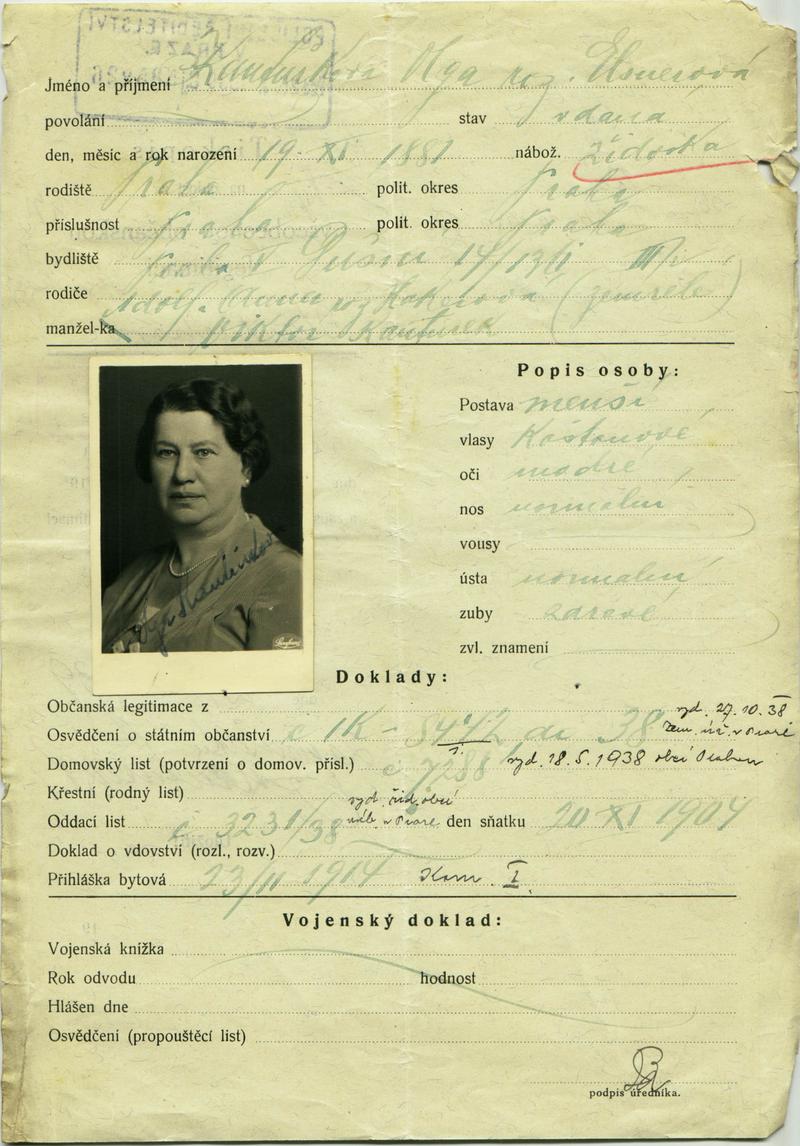 ŘEDITELSTVÍ
PRAZE
Jméno a příjmení Olga roz. Elsnerová
povolání stav vdaná
den, měsíc a rok narození 19 XI 1881 nábož. židovka
rodiště Praha polit. okres Praha
příslušnost Praha polit. okres Praha
bydliště Praha V Dušní 14/13 II
rodiče Adolf. Anna roz (zemřelé)
manžel-ka Viktor
Popis osoby:
Postava menší
vlasy Kaštanové
oči modré
nos normální
vousy
ústa normální
zuby zdravé
zvl. znamení
Olga
Doklady:
Občanská legitimace z
vyd. 27.10.38
Osvědčení o státním občanství č IK - 38
Domovský list (potvrzení o domov. přísl.) č 7288 vyd. 18.5.1938
Křestní (rodný list)
vyd. žid. obcí
Oddací list č 3231/38 den sňatku 20 XI 1904
Doklad o vdovství (rozl., rozv.)
Přihláška bytová 23/11 1914 Kom. I.
Vojenský doklad:
Vojenská knížka
Rok odvodu hodnost
Hlášen dne
Osvědčení (propouštěcí list)
podpis úředníka.